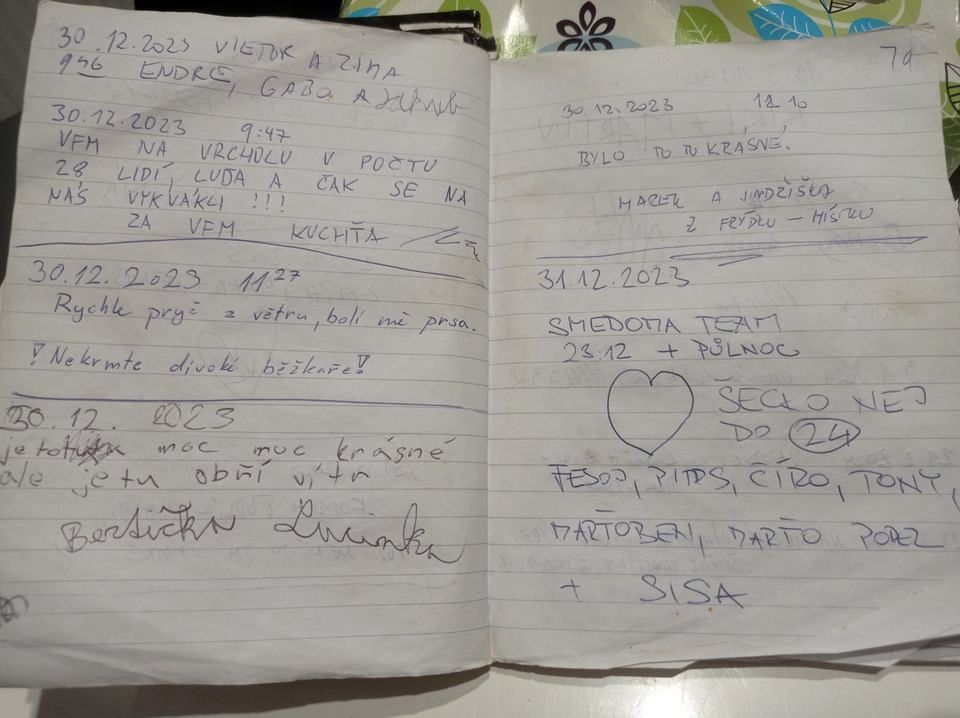 30.12.2023 VIETOR A ZIMA
9 46 ENDRE, GABO A
30.12.2023 9:47
VFM NA VRCHOLU V POČTU
28 LIDÍ, LUĎA A ČAK SE NA
NÁS VYKVÁKLI !!!
ZA VFM KUCHŤA
30.12.2023 11 27
Rychle pryč z větru, bolí mě prsa.
! Nekrmte divoké běžkaře!
30.12. 2023
je to moc moc krásné
ale je tu obří vítr
Bertička Lucinka
79
30.12.2023 12 10
BYLO TO TU KRÁSNÉ.
MAREK A JINDŘIŠKA
Z FRÝDKU - MÍSTKU
31.12.2023
SMEDOMA TEAM
23:12 + PŮLNOC
ŠECKO NEJ
DO 24
FESOJ, PITPS, ČÍRO, TONY,
MARŤOBEN, MARŤO POPEL
+ SISA